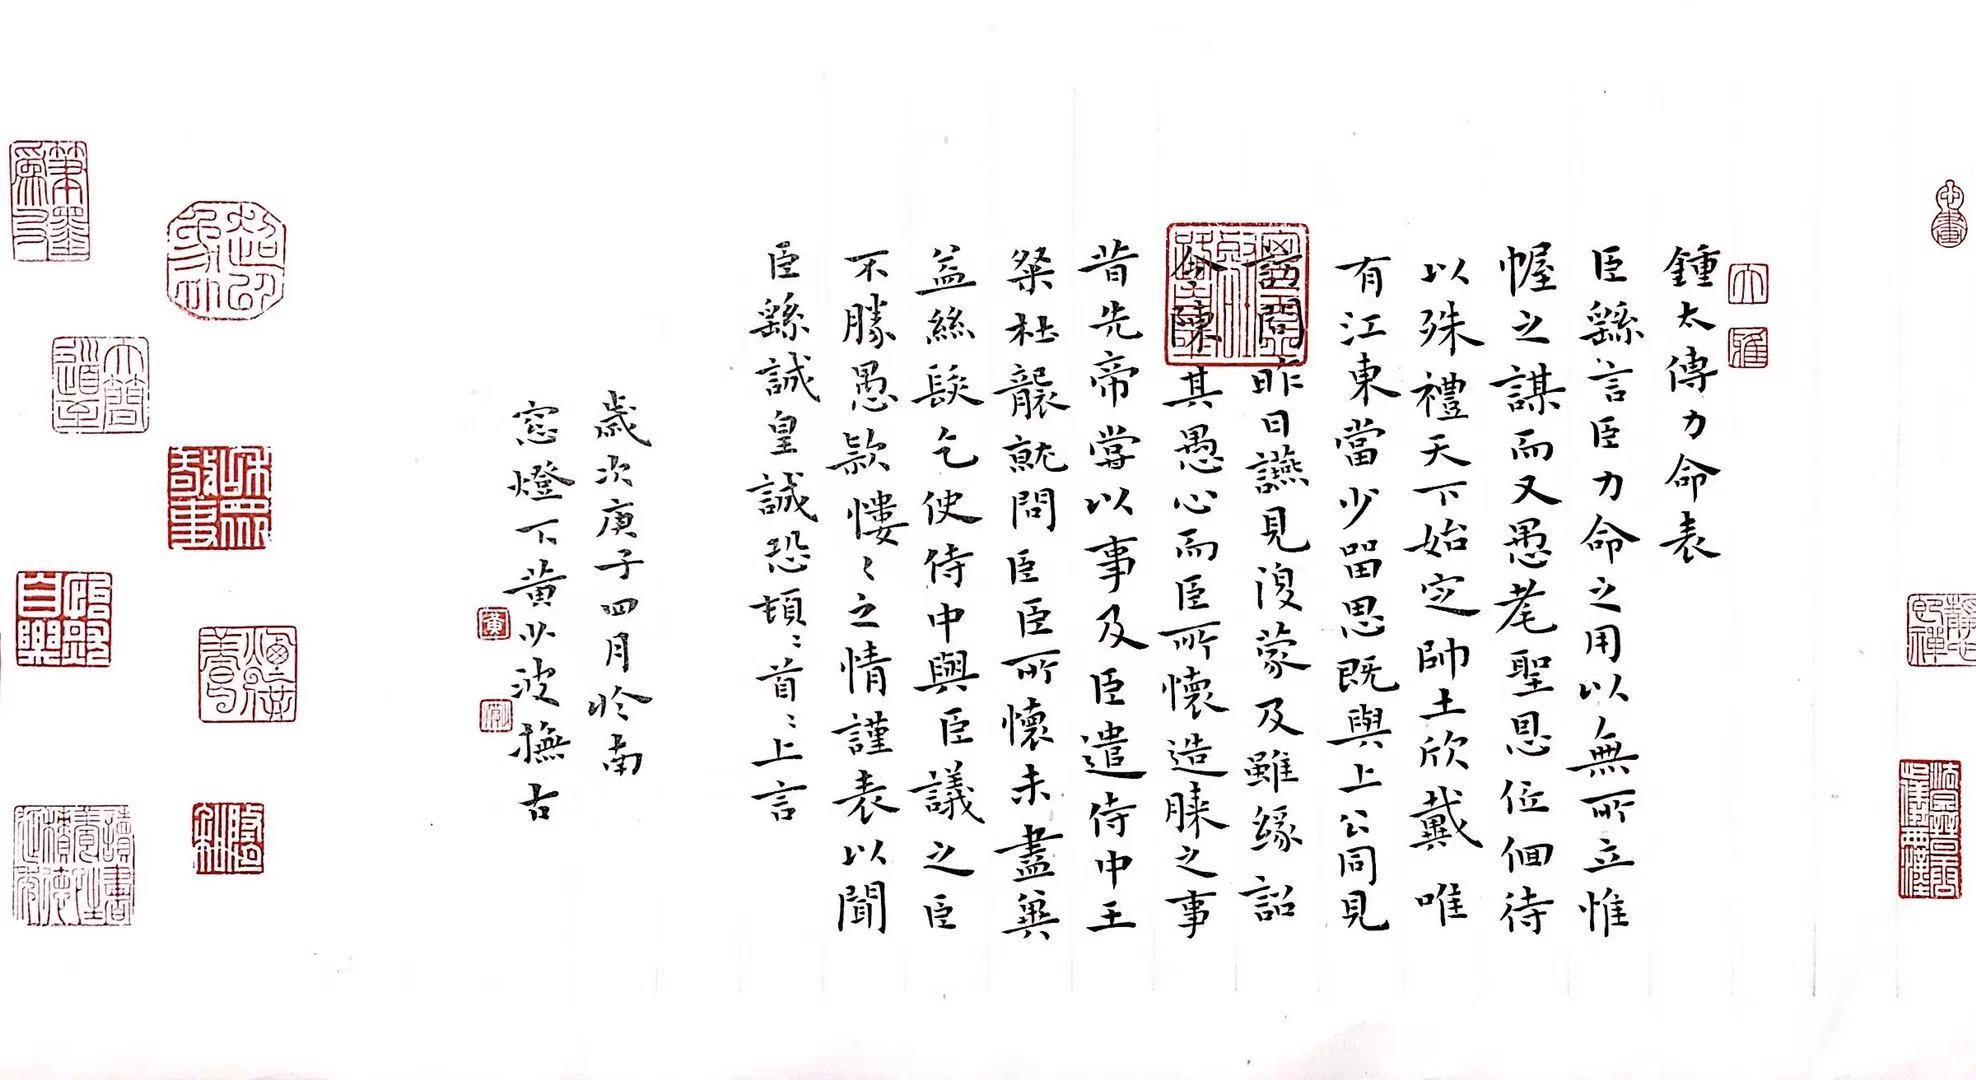 心畫
大雅
鍾太傅力命表
臣繇言臣力命之用以無所立惟
幄之謀而又愚耄聖恩位佪待
以殊禮天下始定帥土欣戴唯
有江東當少留思既與上公同見
訪問昨日讌見復蒙及雖緣詔
令陳其愚心而臣所懷造膝之事
昔先帝嘗以事及臣遣侍中王
粲杜襲就問臣臣所懷未盡冀
益絲髮乞使侍中與臣議之臣
不勝愚款慺〻之情謹表以聞
臣繇誠皇誠恐頓〻首〻上言
歲次庚子四月於南
窓燈下黃少波撫古
黃
筆墨爲友
大簡道至
讀書養性積德延年